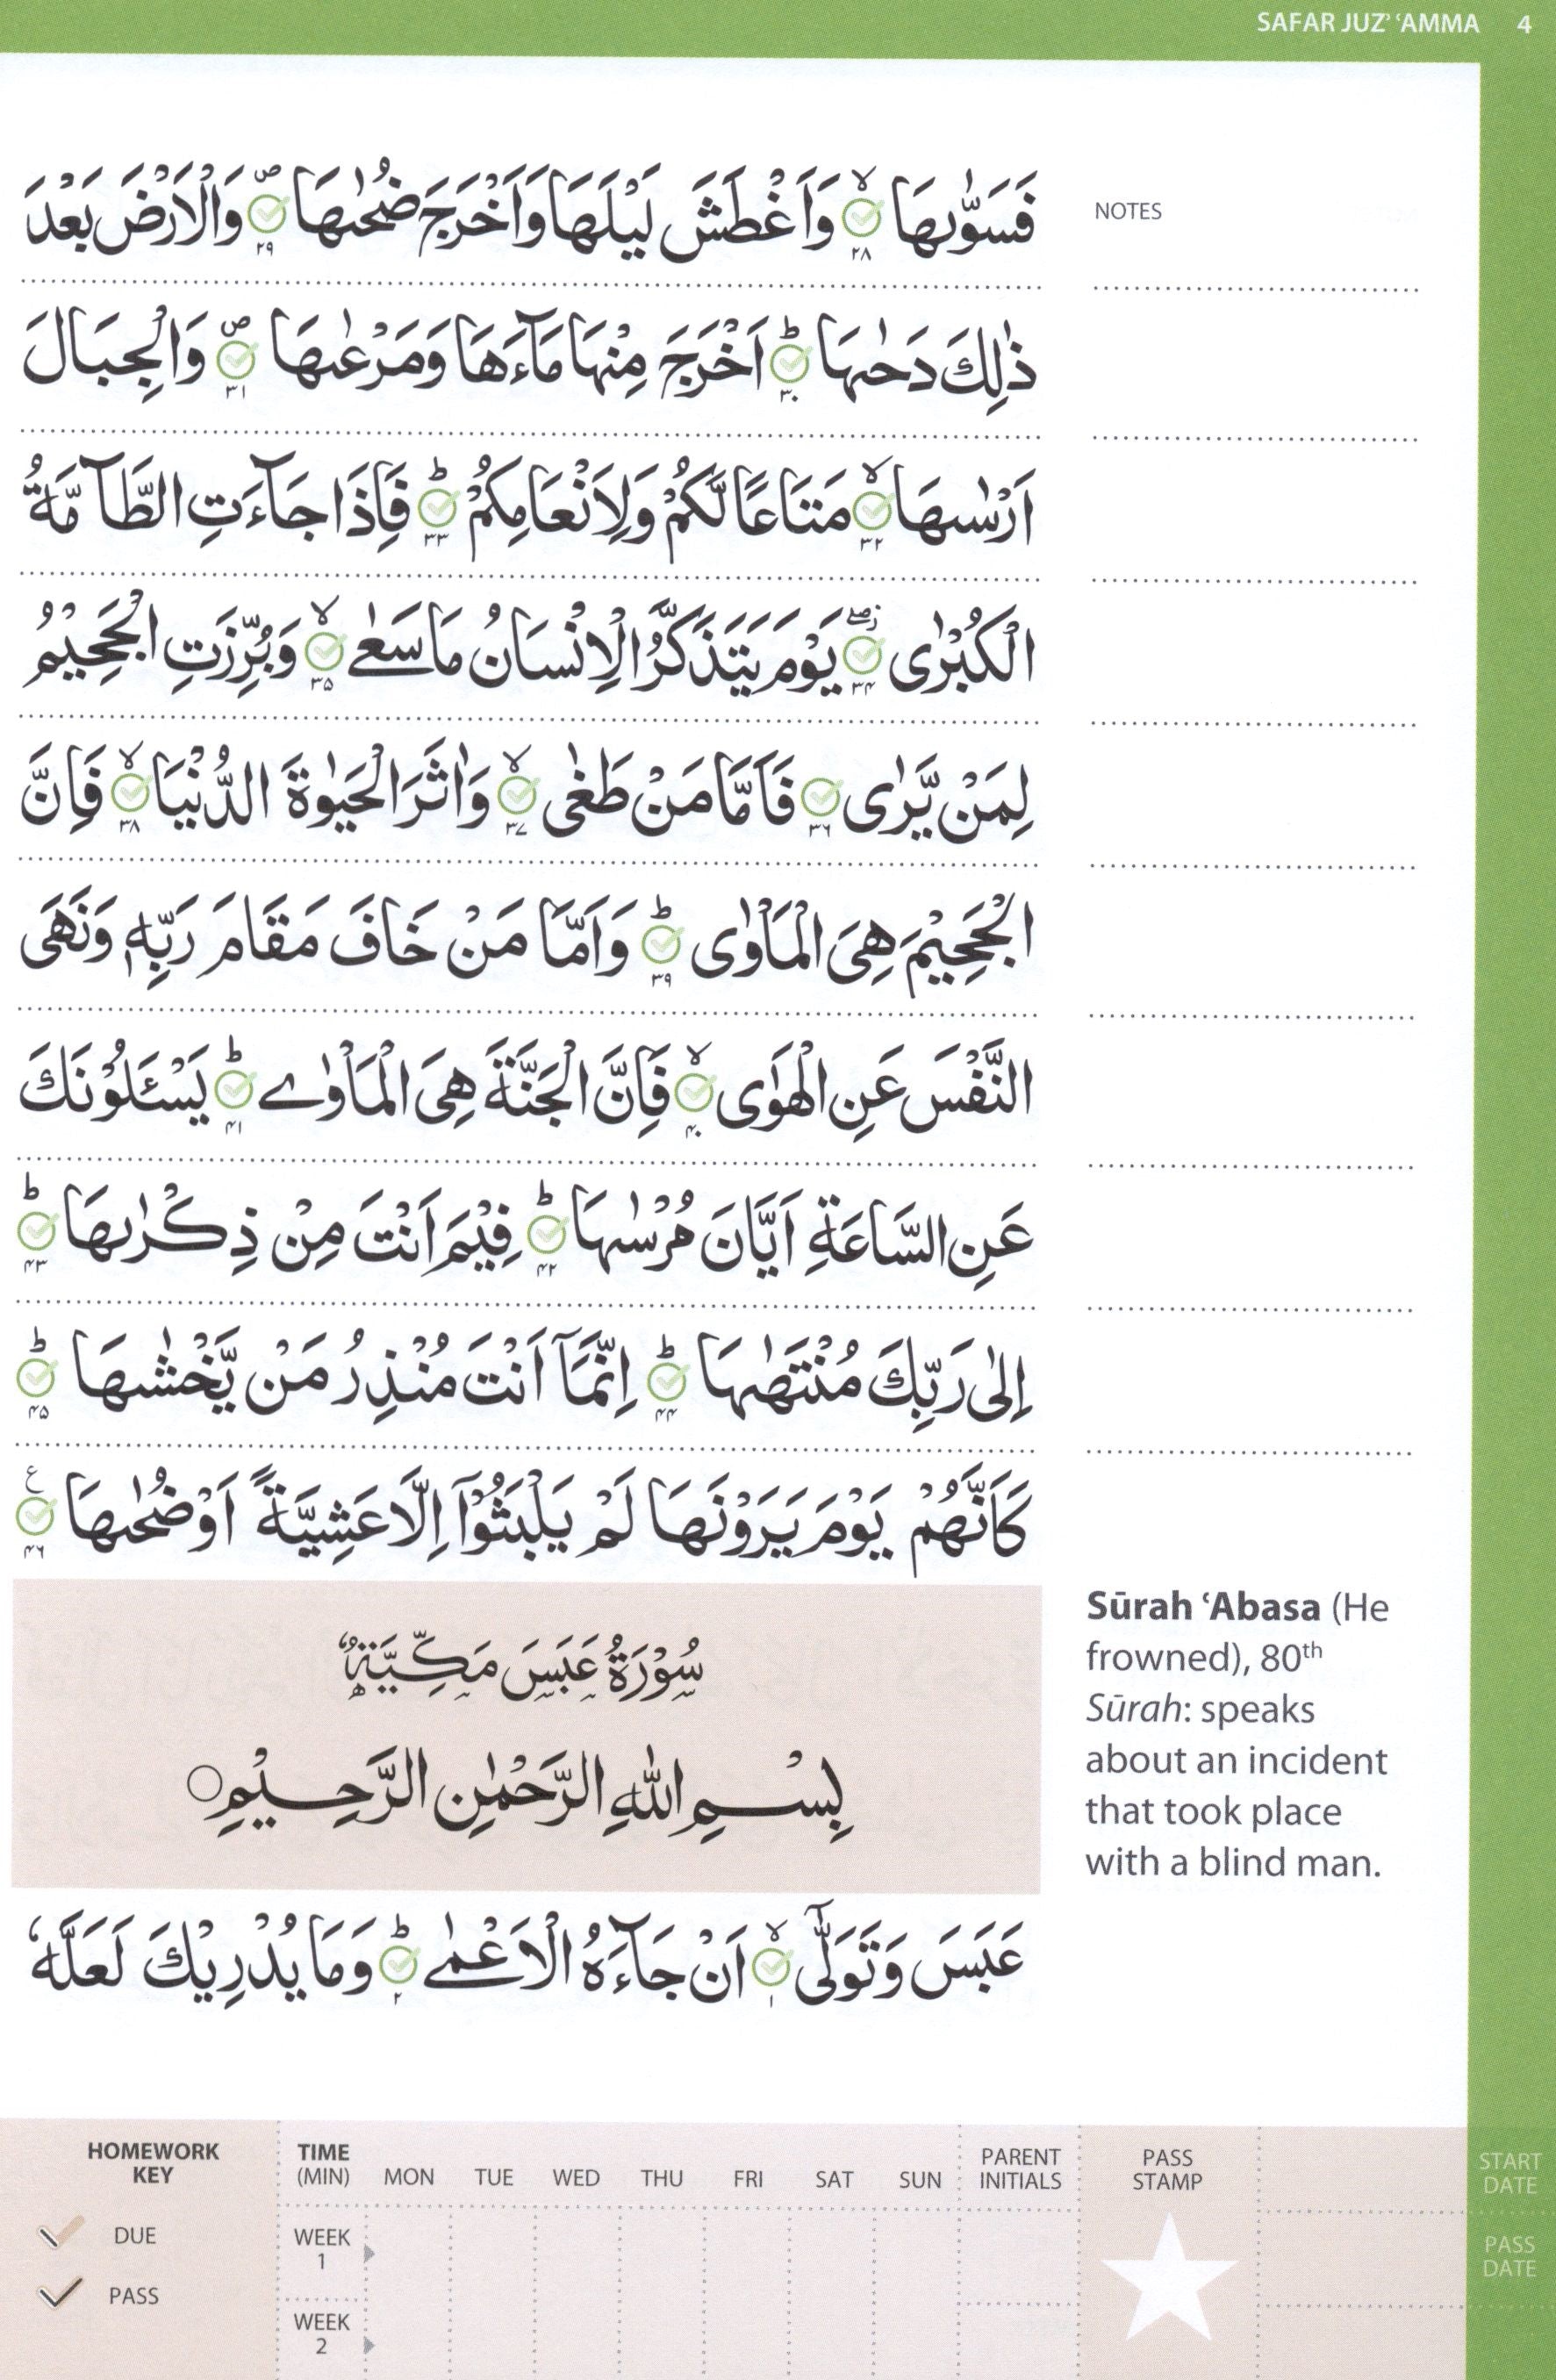 SAFAR JUZ’ ‘AMMA 4
فَسَوّٰىهَا ۙ۲۸ وَاَغْطَشَ لَيْلَهَا وَاَخْرَجَ ضُحٰىهَا ۪۲۹ وَالْاَرْضَ بَعْدَ
NOTES
ذٰلِكَ دَحٰىهَا ؕ۳۰ اَخْرَجَ مِنْهَا مَآءَهَا وَمَرْعٰىهَا ۪۳۱ وَالْجِبَالَ
اَرْسٰىهَا ۙ۳۲ مَتَاعًا لَّكُمْ وَلِاَنْعَامِكُمْ ؕ۳۳ فَاِذَا جَآءَتِ الطَّآمَّةُ
الْكُبْرٰى ۖ۳۴ يَوْمَ يَتَذَكَّرُ الْاِنْسَانُ مَا سَعٰى ۙ۳۵ وَبُرِّزَتِ الْجَحِيْمُ
لِمَنْ يَّرٰى ۳۶ فَاَمَّا مَنْ طَغٰى ۙ۳۷ وَاٰثَرَ الْحَيٰوةَ الدُّنْيَا ۙ۳۸ فَاِنَّ
الْجَحِيْمَ هِيَ الْمَاْوٰى ؕ۳۹ وَاَمَّا مَنْ خَافَ مَقَامَ رَبِّهٖ وَنَهَى
النَّفْسَ عَنِ الْهَوٰى ۙ۴۰ فَاِنَّ الْجَنَّةَ هِيَ الْمَاْوٰى ؕ۴۱ يَسْـَٔلُوْنَكَ
عَنِ السَّاعَةِ اَيَّانَ مُرْسٰىهَا ؕ۴۲ فِيْمَ اَنْتَ مِنْ ذِكْرٰىهَا ؕ۴۳
اِلٰى رَبِّكَ مُنْتَهٰىهَا ؕ۴۴ اِنَّمَآ اَنْتَ مُنْذِرُ مَنْ يَّخْشٰىهَا ؕ۴۵
كَاَنَّهُمْ يَوْمَ يَرَوْنَهَا لَمْ يَلْبَثُوْٓا اِلَّا عَشِيَّةً اَوْ ضُحٰىهَا ع۴۶
سُوْرَةُ عَبَسَ مَكِّيَّةٌ
بِسْمِ اللّٰهِ الرَّحْمٰنِ الرَّحِيْمِ ○
Sūrah ‘Abasa (He
frowned), 80th
Sūrah: speaks
about an incident
that took place
with a blind man.
عَبَسَ وَتَوَلّٰٓى ۙ۱ اَنْ جَآءَهُ الْاَعْمٰى ؕ۲ وَمَا يُدْرِيْكَ لَعَلَّهٗ
HOMEWORK
KEY
DUE
PASS
TIME
(MIN) MON TUE WED THU FRI SAT SUN
PARENT
INITIALS
PASS
STAMP
START
DATE
WEEK
1
PASS
DATE
WEEK
2